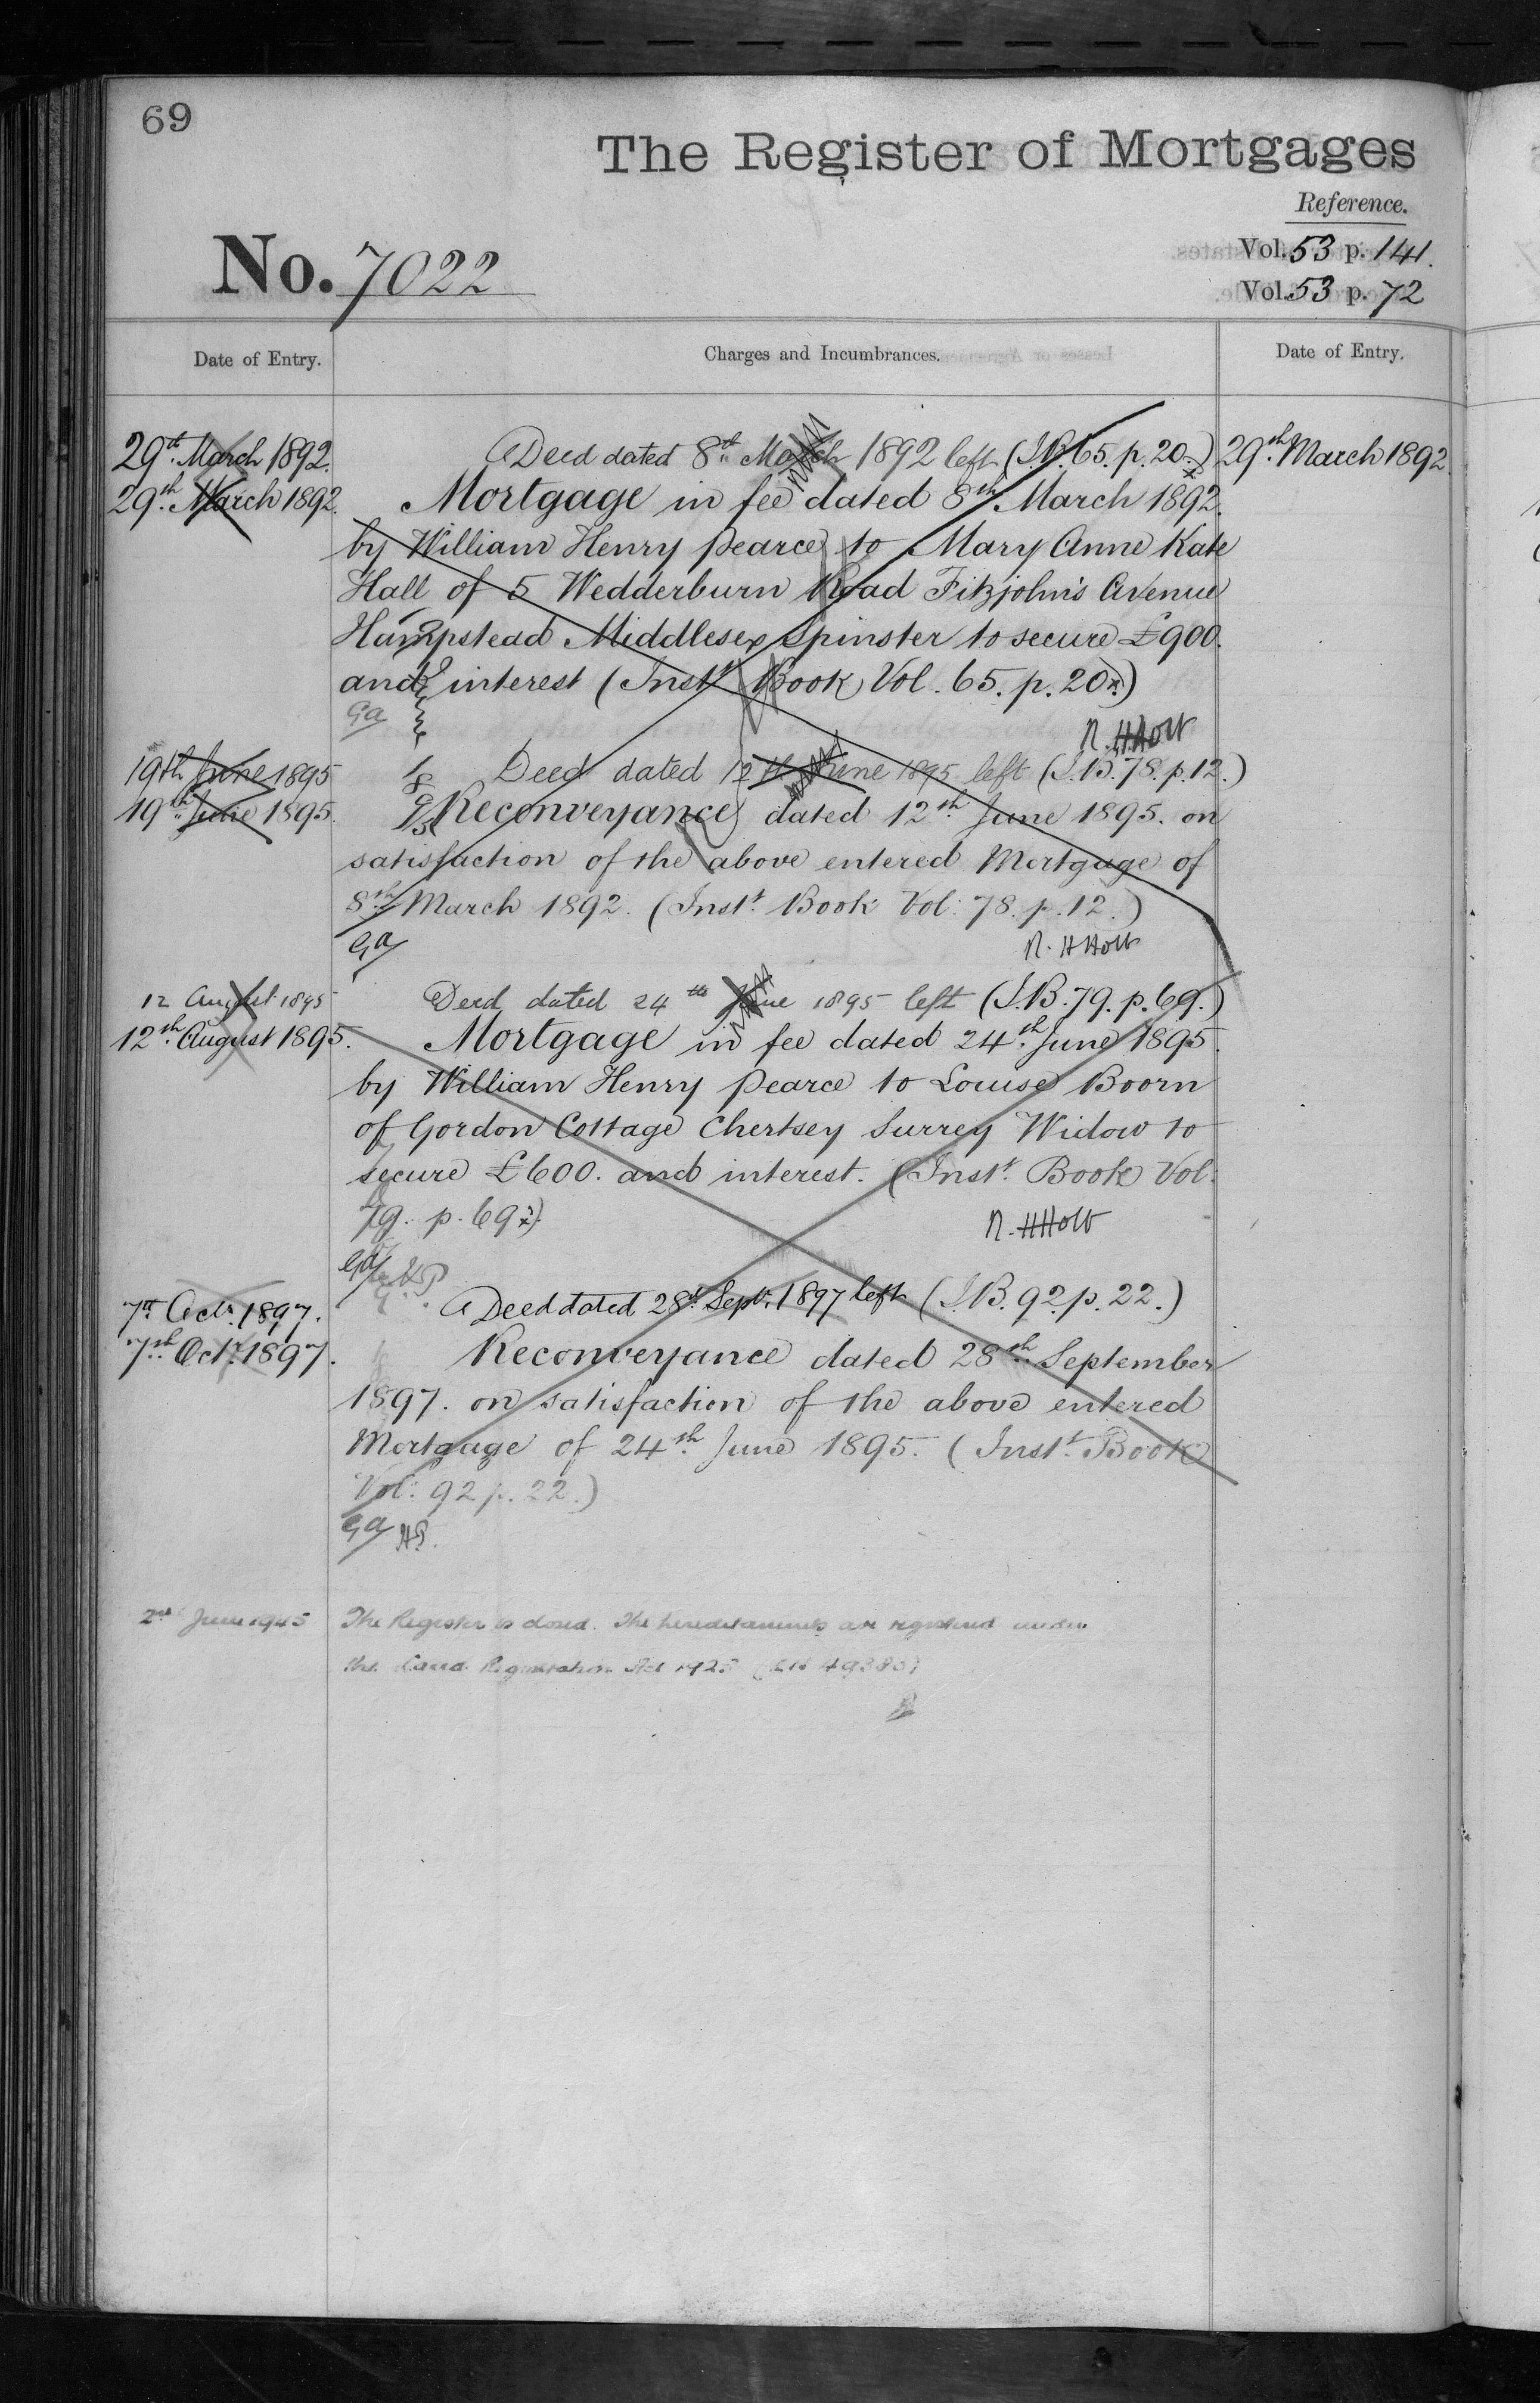 69
The Register of Mortgages
Reference.
No. 7022
Vol. 53 p. 141.
Vol. 53 p. 72
Date of Entry.
Charges and Incumbrances.
Date of Entry.
29th March 1892. Deed dated 8th March 1892 left (I.B. 65. p. 20.) 29th March 1892.
29th March 1892. Mortgage in fee dated 8th March 1892.
by William Henry Pearce to Mary Anne Kate
Hall of 5 Wedderburn Road Fitzjohn's Avenue
Hampstead Middlesex Spinster to secure £900.
and interest (Inst. Book Vol. 65. p. 20.)
Ga
N. H Holt
19th June 1895 Deed dated 12th June 1895 left (I.B. 78. p. 12.)
19th June 1895. Reconveyance dated 12th June 1895. on
satisfaction of the above entered Mortgage of
8th March 1892. (Inst. Book Vol: 78. p. 12.)
Ga
N. H Holt
12 August 1895 Deed dated 24th June 1895 left (I.B. 79. p. 69.)
12th August 1895. Mortgage in fee dated 24th June 1895.
by William Henry Pearce to Louise Boorn
of Gordon Cottage Chertsey Surrey Widow to
secure £600. and interest. (Inst. Book Vol:
79. p. 69.)
N. H Holt
Ga
7th Octr. 1897. Deed dated 28th Septr. 1897 left (I.B. 92. p. 22.)
7th Octr. 1897. Reconveyance dated 28th September
1897. on satisfaction of the above entered
Mortgage of 24th June 1895. (Inst. Book
Vol: 92 p. 22.)
Ga HP.
2nd June 1945 The Register is closed. The hereditaments are registered under
the Land Registration Act 1925